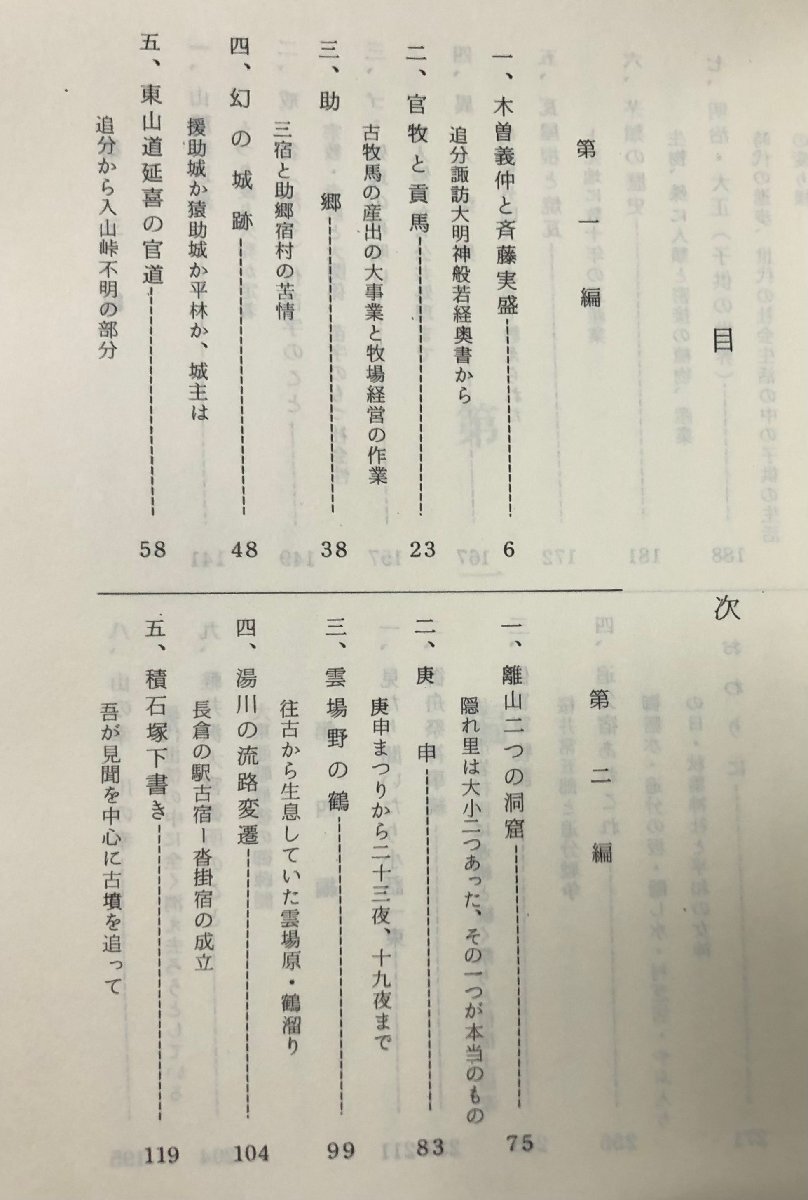 目次
第一編
一、木曽義仲と斉藤実盛 6
追分諏訪大明神般若経奥書から
二、官牧と貢馬 23
古牧馬の産出の大事業と牧場経営の作業
三、助郷 38
三宿と助郷宿村の苦情
四、幻の城跡 48
援助城か猿助城か平林か、城主は
五、東山道延喜の官道 58
追分から入山峠不明の部分
第二編
一、離山二つの洞窟 75
隠れ里は大小二つあった、その一つが本当のもの
二、庚申 83
庚申まつりから二十三夜、十九夜まで
三、雲場野の鶴 99
往古から生息していた雲場原・鶴溜り
四、湯川の流路変遷 104
長倉の駅古宿ー沓掛宿の成立
五、積石塚下書き 119
吾が見聞を中心に古墳を追って